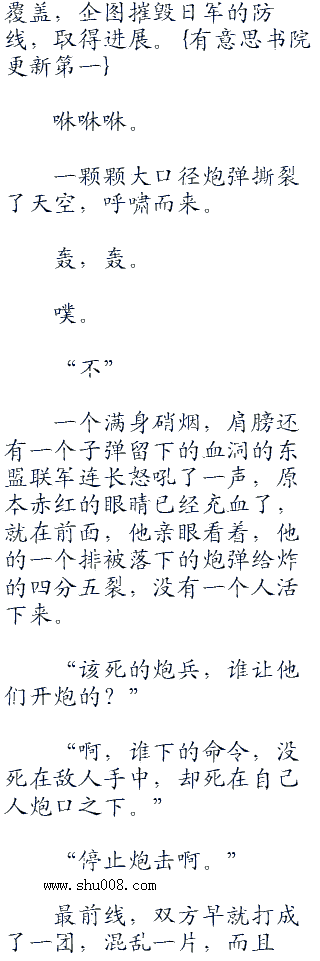 覆盖，企图摧毁日军的防
线，取得进展。{有意思书院
更新第一}
咻咻咻。
一颗颗大口径炮弹撕裂
了天空，呼啸而来。
轰，轰。
噗。
“不”
一个满身硝烟，肩膀还
有一个子弹留下的血洞的东
盟联军连长怒吼了一声，原
本赤红的眼睛已经充血了，
就在前面，他亲眼看着，他
的一个排被落下的炮弹给炸
的四分五裂，没有一个人活
下来。
“该死的炮兵，谁让他
们开炮的？”
“啊，谁下的命令，没
死在敌人手中，却死在自己
人炮口之下。”
“停止炮击啊。”
www.shu008.com
最前线，双方早就打成
了一团，混乱一片，而且